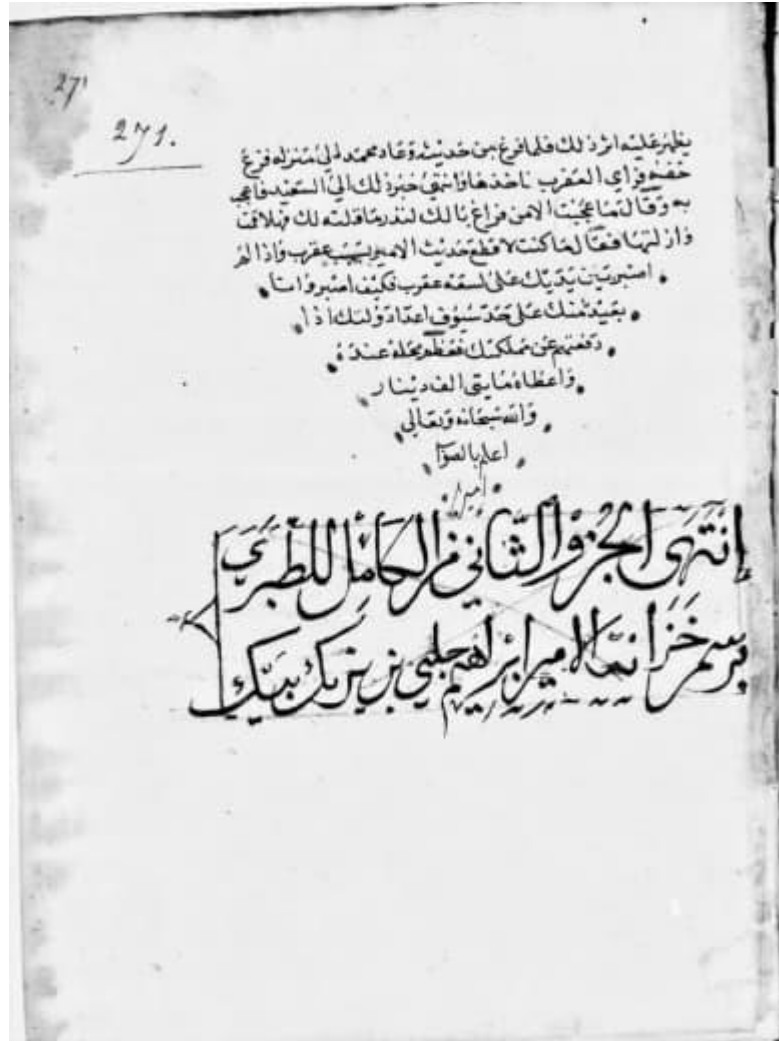 27'
271.
يظهر عليه اثر ذلك فلما فرغ من حديثه وعاد محمد الي منزله فزع
خفيه فراي العقرب فاخذها وانتهي خبر ذلك الي السعيد فاعجب
به وقال ما عجبت الا من فراغ بالك لتدبر ما قلته لك فهلا قمت
وازلتها فقال ما كنت لاقطع حديث الامير بسبب عقرب واذا لم
اصبر بين يديك على لسعة عقرب فكيف اصبر وانا
بعيد منك على حد سيوف اعداد ولتك اذا
دفعتهم عن مملكتك فعظم محله عنده
واعطاه مايتي الف دينار
والله سبحانه وتعالي
اعلم بالصوا
امين
إنتهى الجزو الثاني من الكامل للطبري
برسم خزانة الامير ابرهيم جلبي بن
بيك